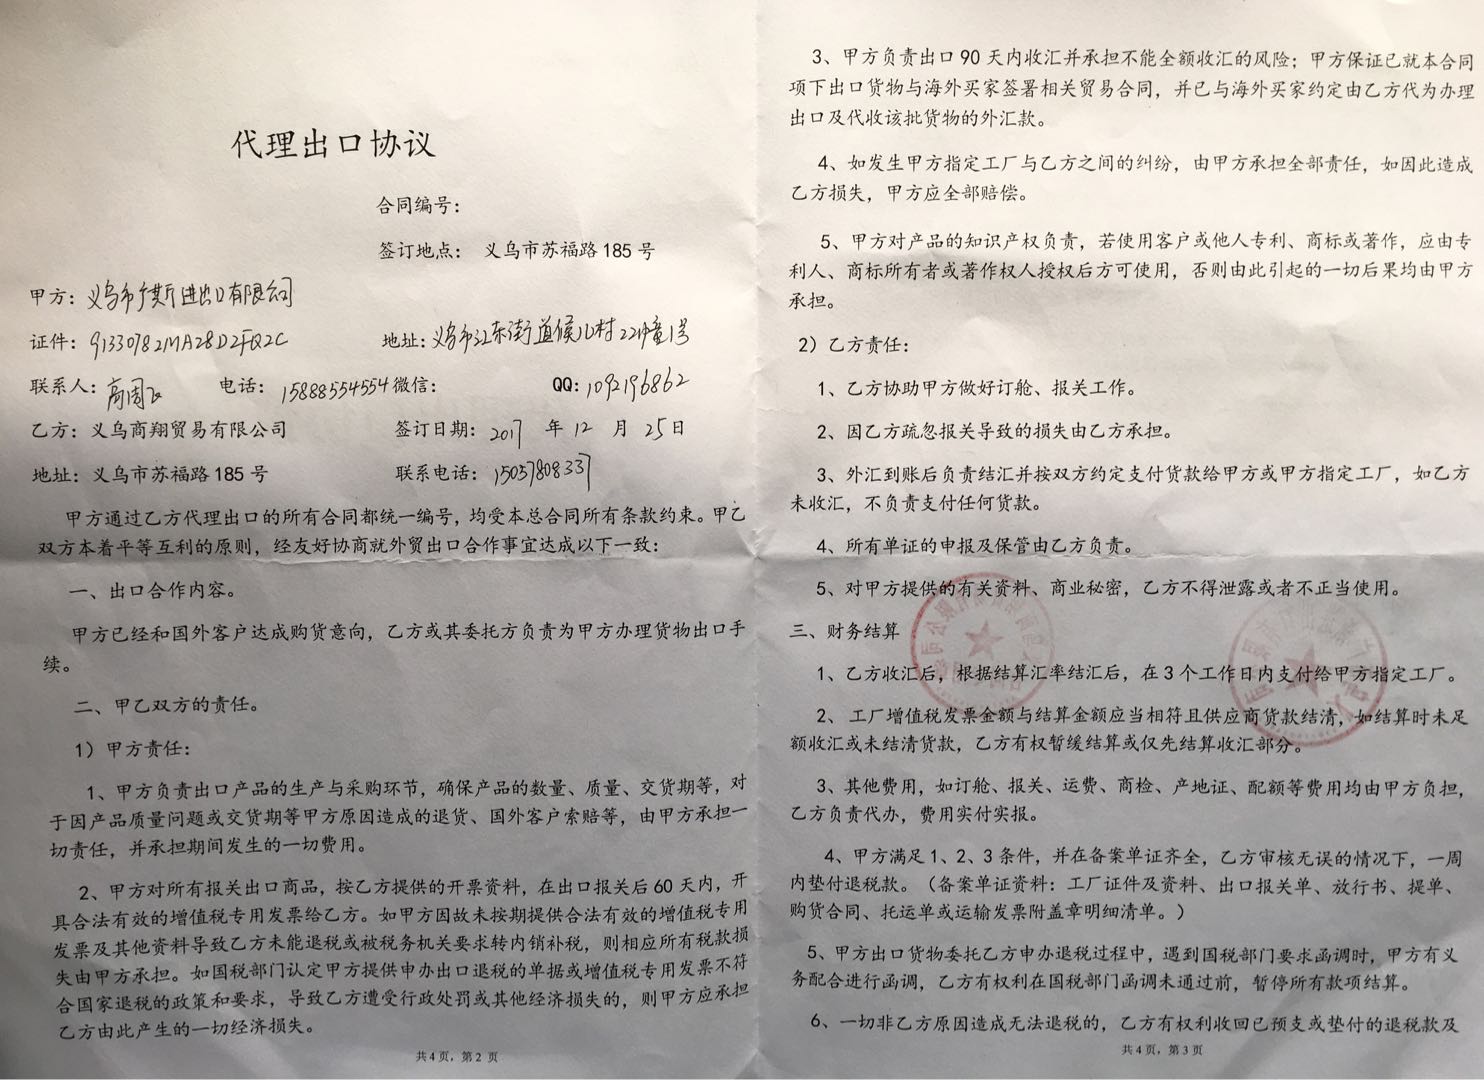 代理出口协议
合同编号：
签订地点： 义乌市苏福路 185 号
甲方：义乌市 进出口有限公司
证件：91330782MA28D2FQ2C 地址：义乌市江东街道候儿村22幢1号
联系人： 电话：15888554554 微信： QQ：1092196862
乙方：义乌商翔贸易有限公司 签订日期：2017 年 12 月 25 日
地址：义乌市苏福路 185 号 联系电话：15057808337
甲方通过乙方代理出口的所有合同都统一编号，均受本总合同所有条款约束。甲乙
双方本着平等互利的原则，经友好协商就外贸出口合作事宜达成以下一致：
一、出口合作内容。
甲方已经和国外客户达成购货意向，乙方或其委托方负责为甲方办理货物出口手
续。
二、甲乙双方的责任。
1）甲方责任：
1、甲方负责出口产品的生产与采购环节，确保产品的数量、质量、交货期等，对
于因产品质量问题或交货期等甲方原因造成的退货、国外客户索赔等，由甲方承担一
切责任，并承担期间发生的一切费用。
2、甲方对所有报关出口商品，按乙方提供的开票资料，在出口报关后 60 天内，开
具合法有效的增值税专用发票给乙方。如甲方因故未按期提供合法有效的增值税专用
发票及其他资料导致乙方未能退税或被税务机关要求转内销补税，则相应所有税款损
失由甲方承担。如国税部门认定甲方提供申办出口退税的单据或增值税专用发票不符
合国家退税的政策和要求，导致乙方遭受行政处罚或其他经济损失的，则甲方应承担
乙方由此产生的一切经济损失。
共 4 页，第 2 页
3、甲方负责出口 90 天内收汇并承担不能全额收汇的风险；甲方保证已就本合同
项下出口货物与海外买家签署相关贸易合同，并已与海外买家约定由乙方代为办理
出口及代收该批货物的外汇款。
4、如发生甲方指定工厂与乙方之间的纠纷，由甲方承担全部责任，如因此造成
乙方损失，甲方应全部赔偿。
5、甲方对产品的知识产权负责，若使用客户或他人专利、商标或著作，应由专
利人、商标所有者或著作权人授权后方可使用，否则由此引起的一切后果均由甲方
承担。
2）乙方责任：
1、乙方协助甲方做好订舱、报关工作。
2、因乙方疏忽报关导致的损失由乙方承担。
3、外汇到账后负责结汇并按双方约定支付货款给甲方或甲方指定工厂，如乙方
未收汇，不负责支付任何货款。
4、所有单证的申报及保管由乙方负责。
5、对甲方提供的有关资料、商业秘密，乙方不得泄露或者不正当使用。
三、财务结算
1、乙方收汇后，根据结算汇率结汇后，在 3 个工作日内支付给甲方指定工厂。
2、工厂增值税发票金额与结算金额应当相符且供应商货款结清，如结算时未足
额收汇或未结清货款，乙方有权暂缓结算或仅先结算收汇部分。
3、其他费用，如订舱、报关、运费、商检、产地证、配额等费用均由甲方负担，
乙方负责代办，费用实付实报。
4、甲方满足 1、2、3 条件，并在备案单证齐全，乙方审核无误的情况下，一周
内垫付退税款。（备案单证资料：工厂证件及资料、出口报关单、放行书、提单、
购货合同、托运单或运输发票附盖章明细清单。）
5、甲方出口货物委托乙方申办退税过程中，遇到国税部门要求函调时，甲方有义
务配合进行函调，乙方有权利在国税部门函调未通过前，暂停所有款项结算。
6、一切非乙方原因造成无法退税的，乙方有权利收回已预支或垫付的退税款及
共 4 页，第 3 页